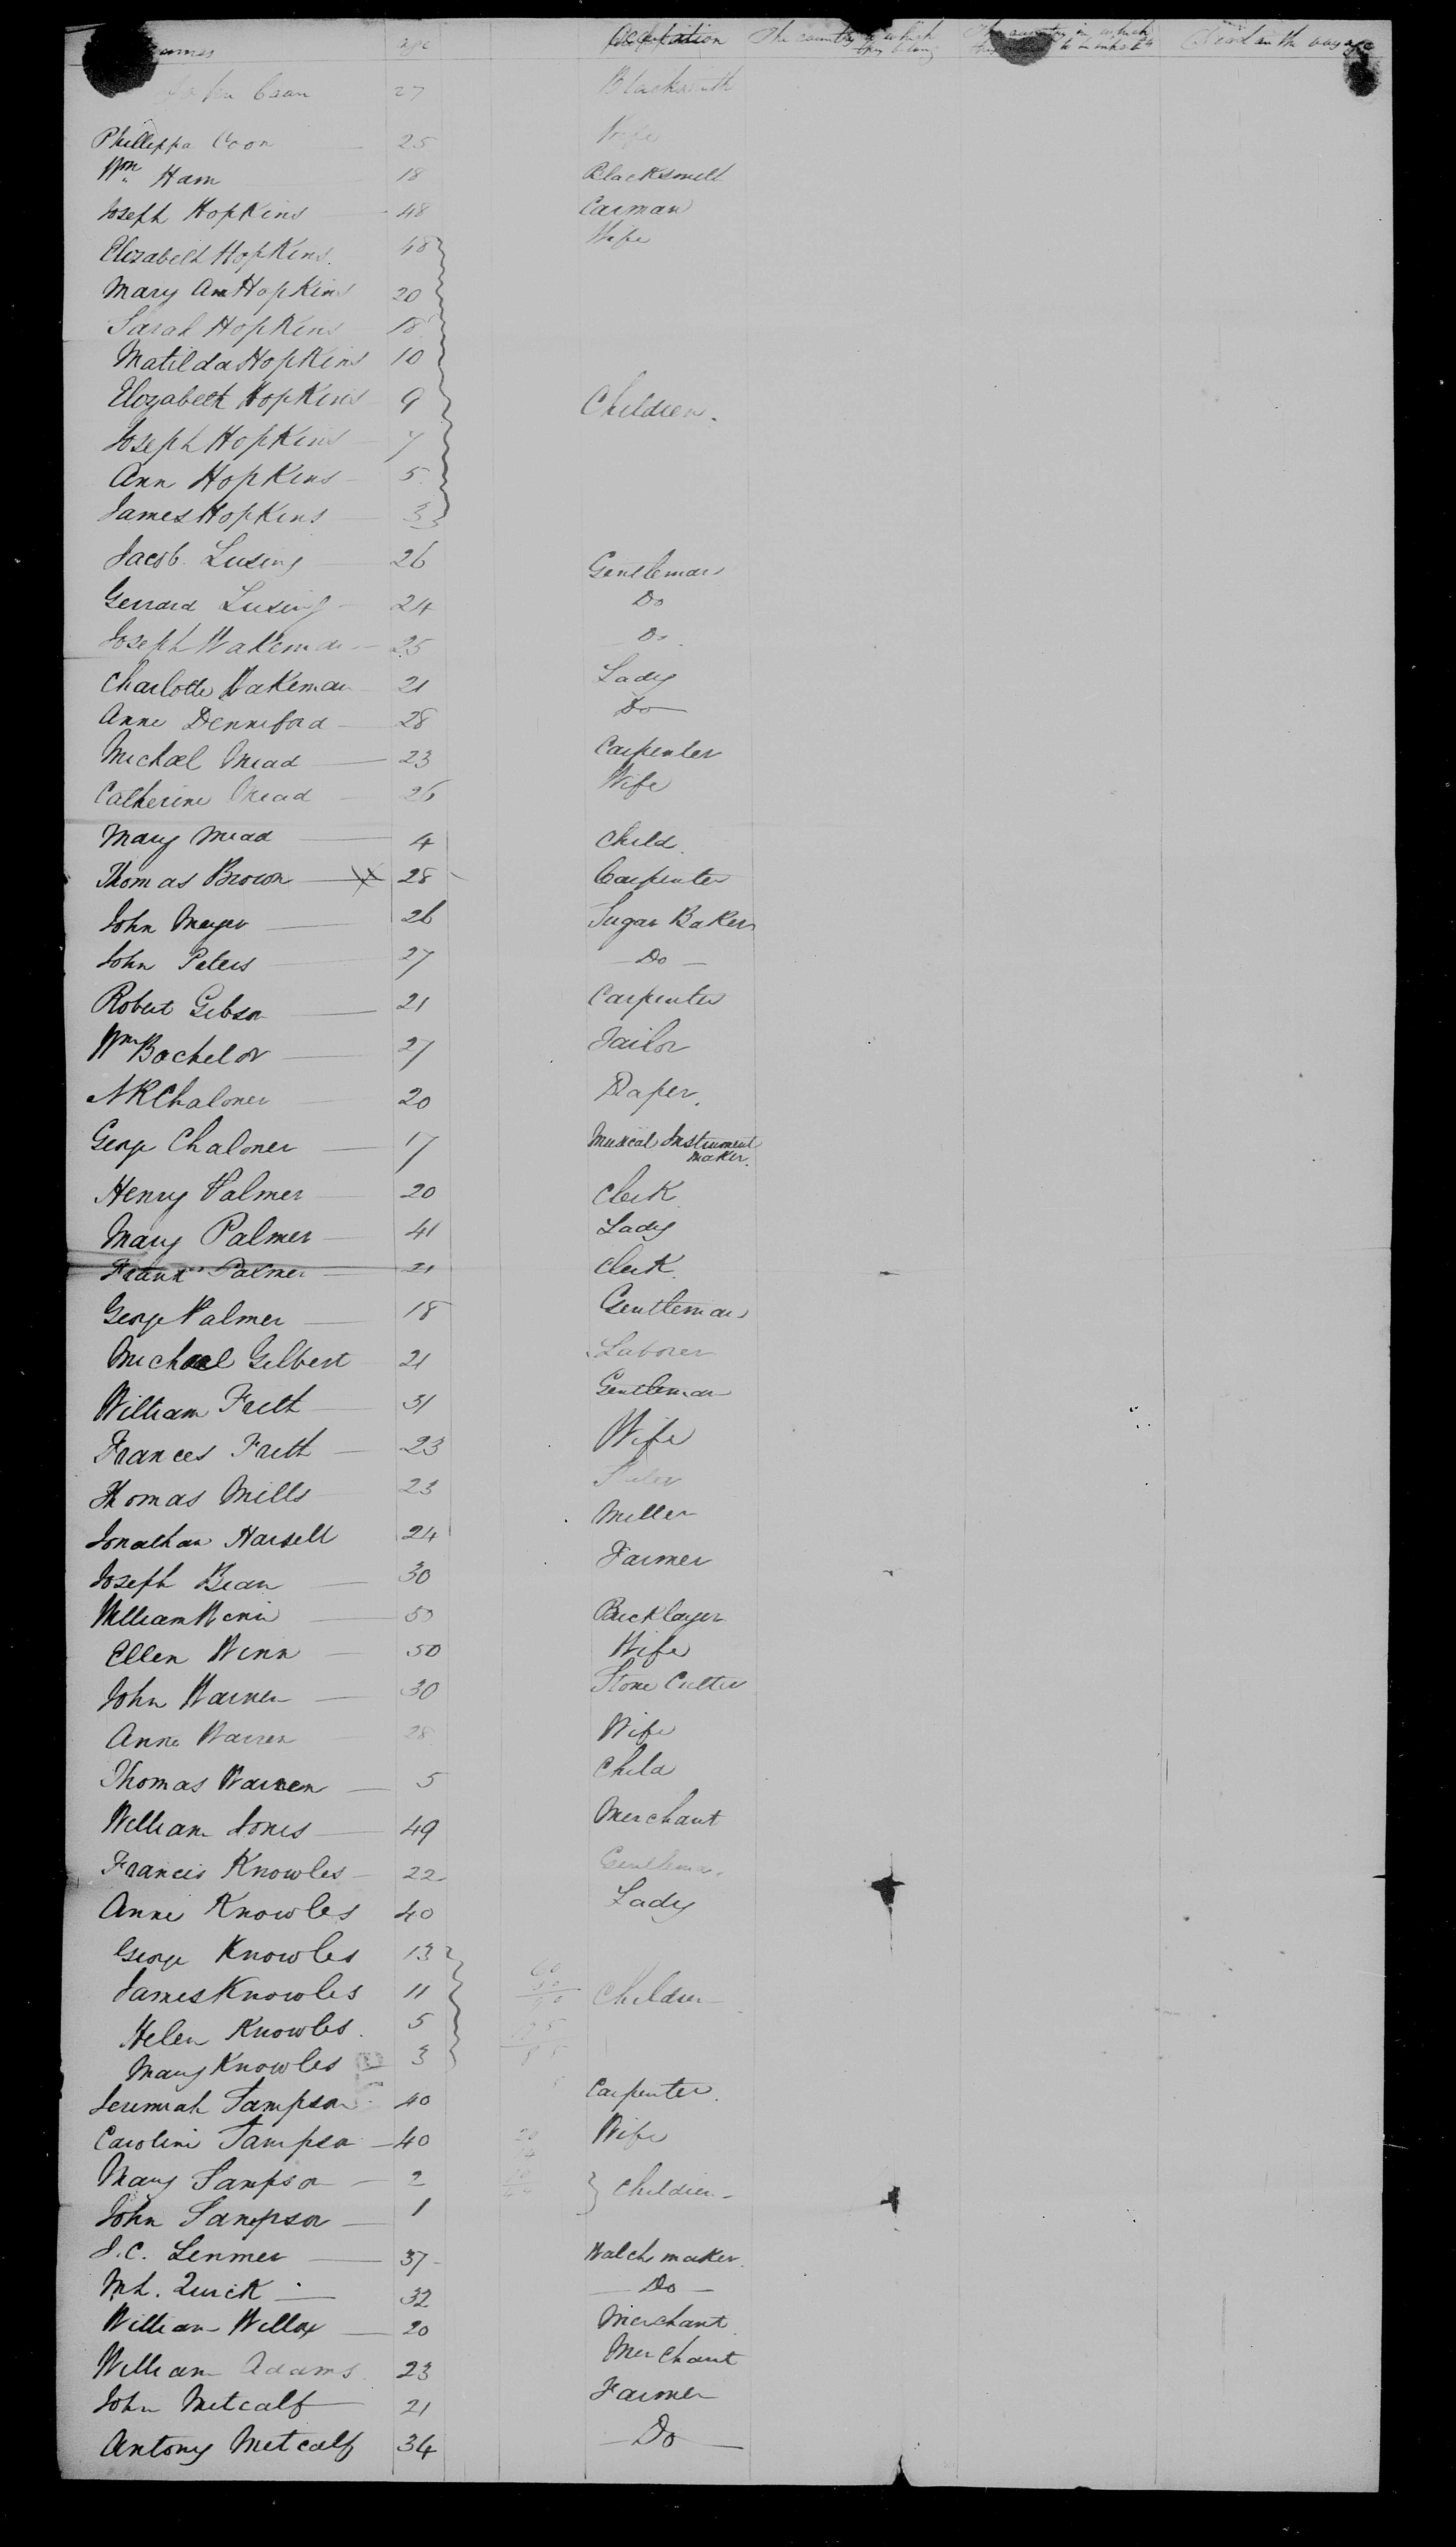 names age Occupation The country to which they belong The country in which they to inhabit Died on the voyage
John 27 Blacksmith
Phillippa Coon 25 Wife
Wm Ham 18 Blacksmith
Joseph Hopkins 48 Carman
Elizabeth Hopkins 48 Wife
Mary Ann Hopkins 20
Sarah Hopkins 18
Matilda Hopkins 10
Elizabeth Hopkins 9 Children.
Joseph Hopkins 7
Ann Hopkins 5
James Hopkins 3
Jacob Lusing 26 Gentleman
Gerrard Lusing 24 Do
Joseph Wakeman 25 Do
Charlotte Wakeman 21 Lady
Anne Denneford 28 Do
Michael Mead 23 Carpenter
Catherine Mead 26 Wife
Mary Mead 4 Child
Thomas Brown 28 Carpenter
John Meyer 26 Sugar Baker
John Peters 27 Do
Robert Gibson 21 Carpenter
Wm Bachelor 27 Tailor
N R Chaloner 20 Draper.
George Chaloner 17 Musical Instrument Maker.
Henry Palmer 20 Clerk
Mary Palmer 41 Lady
Frank Palmer 21 Clerk
George Palmer 18 Gentleman
Michael Gilbert 21 Laborer
William Frith 31 Gentleman
Frances Frith 23 Wife
Thomas Mills 23
Jonathan Harsell 24 Miller
Joseph Bean 30 Farmer
William Winn 50 Bricklayer
Ellen Winn 50 Wife
John Warren 30 Stone Cutter
Anne Warren 28 Wife
Thomas Warren 5 Child
William Jones 49 Merchant
Francis Knowles 22 Gentleman
Anne Knowles 40 Lady
George Knowles 13
James Knowles 11 Children
Helen Knowles 5
Mary Knowles 3
Jeremiah Sampson 40 Carpenter
Caroline Sampson 40 Wife
Mary Sampson 2 Children
John Sampson 1
J. C. Lenmer 37 Watch maker
Mh. Quick 32 Do
William Willox 20 Merchant
William Adams 23 Merchant
John Metcalf 21 Farmer
Antony Metcalf 34 Do